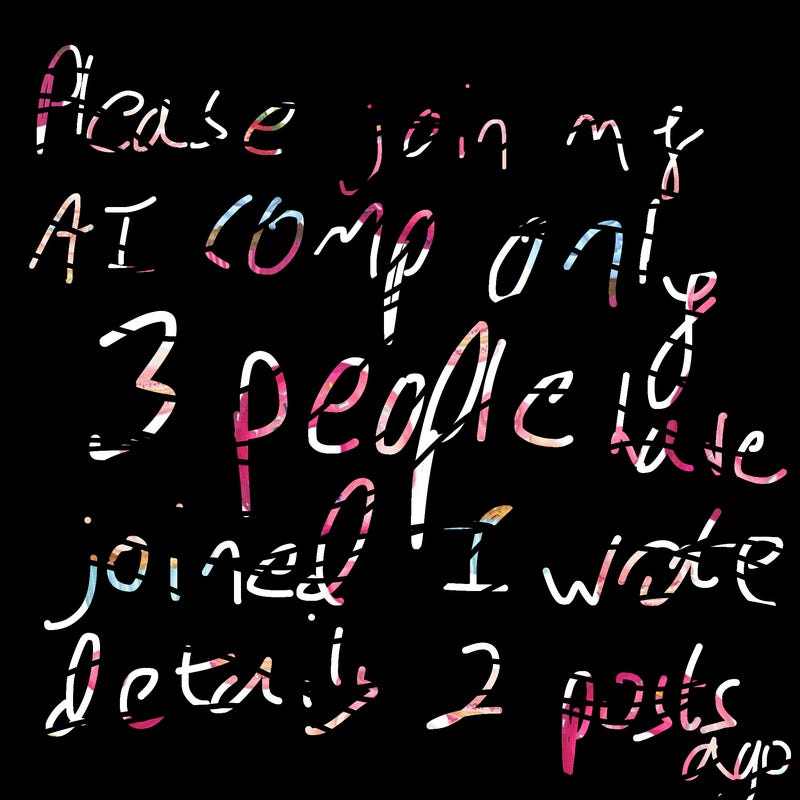 Please join my
AI comp only
3 people have
joined I wrote
details 2 posts
ago